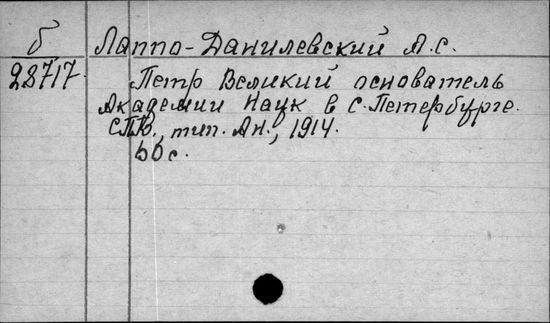 б Лаппо-Данилевский А.С.
28717. Петр Великий основатель
Академии Наук в С.Петербурге.
СПб., тип. Ан., 1914.
66 с.